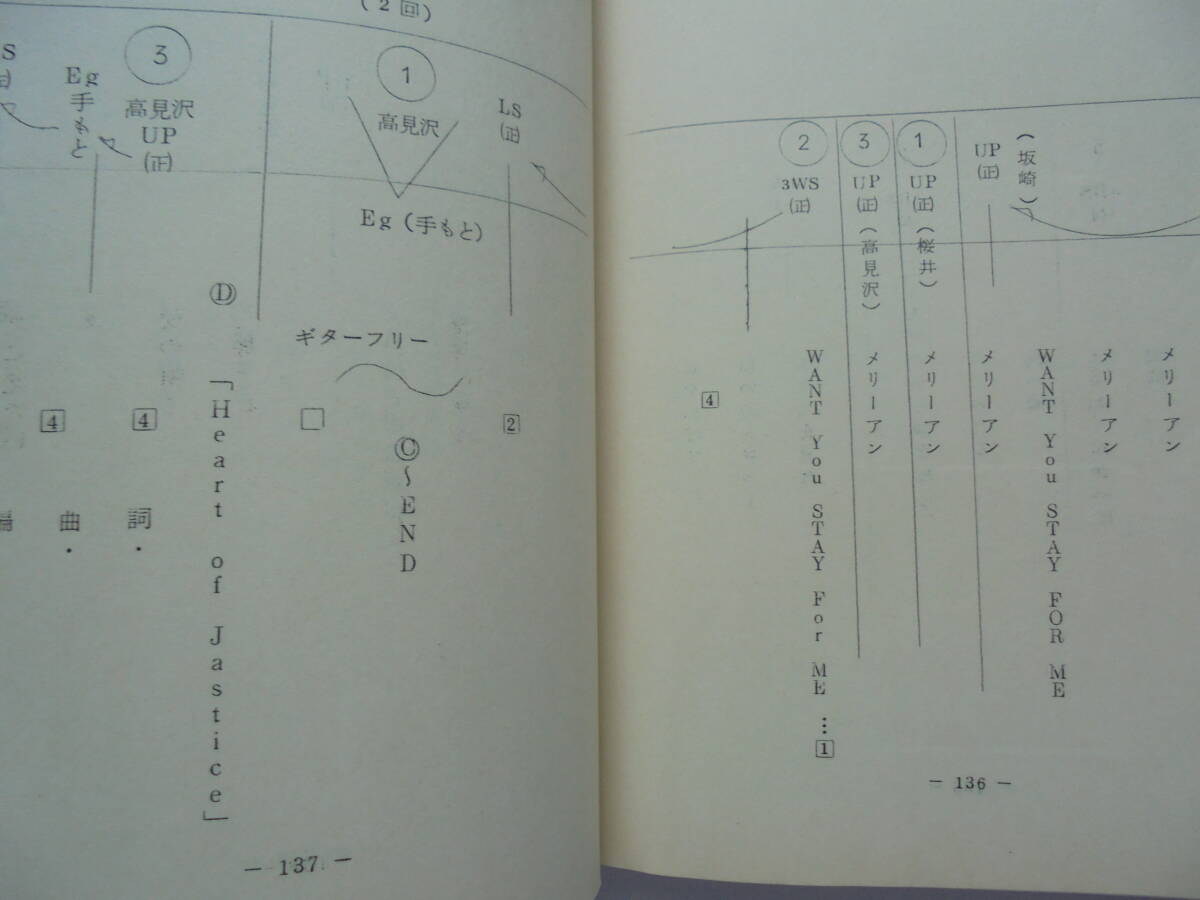 メリーアン
メリーアン
WANT You STAY FOR ME
(坂崎)
UP
(正)
メリーアン
1
UP
(正)
(桜井)
メリーアン
3
UP
(正)
(高見沢)
メリーアン
2
3WS
(正)
WANT You STAY For ME …1
4
— 136 —
(2回)
LS
(正)
2
1
高見沢
Eg(手もと)
ギターフリー
Ⓒ~END
Ⓓ「Heart of Jastice」
3
高見沢
UP
(正)
4 詞・
Eg
手もと
4 曲・
— 137 —